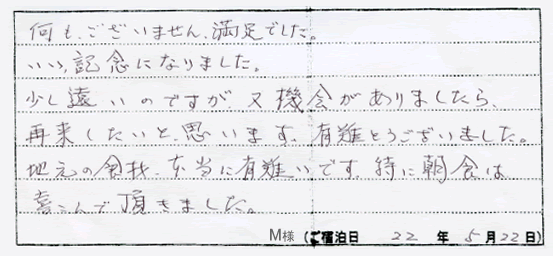 何も、ございません、満足でした。
いい、記念になりました。
少し遠いのですが、又機会がありましたら、
再来したいと、思います、有難とうございました。
地元の食材、本当に有難いです、特に朝食は、
喜こんで頂きました。
M様 (ご宿泊日 22 年 5月22日)